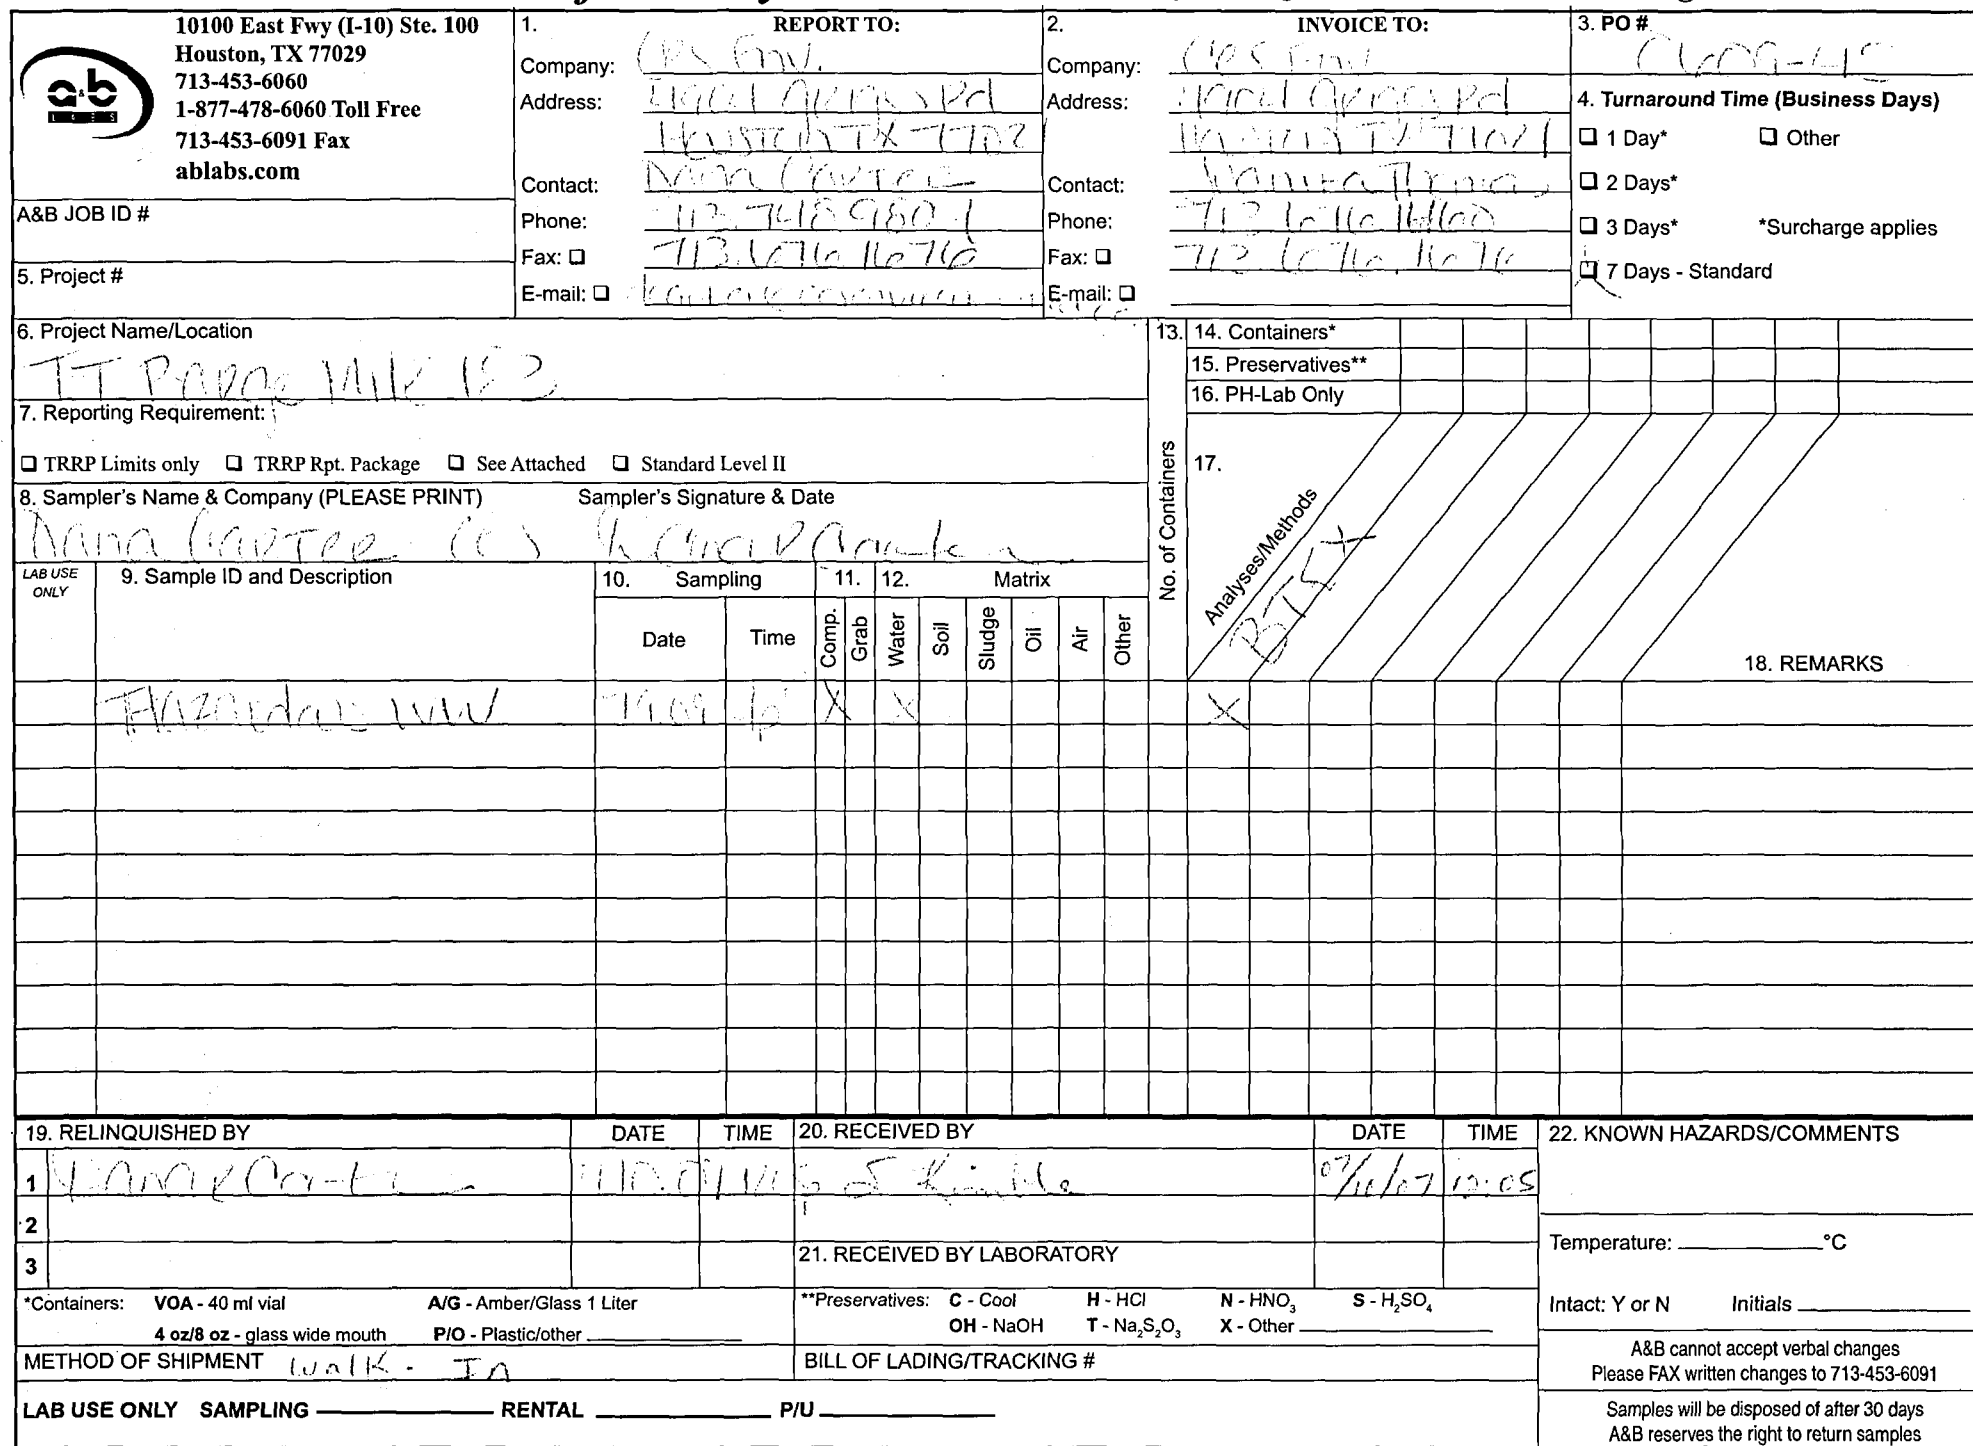 10100 East Fwy (I-10) Ste. 100
Houston, TX 77029
713-453-6060
1-877-478-6060 Toll Free
713-453-6091 Fax
ablabs.com
a&b
LABS
A&B JOB ID #
5. Project #
1. REPORT TO:
Company: CES Env.
Address: Rd
Houston TX 77021
Contact: Dana Carter
Phone: 713.748.9801
Fax: 713.676.1676
E-mail:
2. INVOICE TO:
Company: CES Env
Address: Rd
Houston TX 77021
Contact:
Phone: 713
Fax: 713.676.1676
E-mail:
3. PO #
4. Turnaround Time (Business Days)
1 Day* Other
2 Days*
3 Days* *Surcharge applies
7 Days - Standard
6. Project Name/Location
7. Reporting Requirement:
TRRP Limits only TRRP Rpt. Package See Attached Standard Level II
8. Sampler's Name & Company (PLEASE PRINT) Sampler's Signature & Date
Dana Carter CES
13. No. of Containers
14. Containers*
15. Preservatives**
16. PH-Lab Only
17. Analyses/Methods
BTEX
18. REMARKS
LAB USE ONLY 9. Sample ID and Description 10. Sampling 11. 12. Matrix
Date Time Comp. Grab Water Soil Sludge Oil Air Other
WW X X X
19. RELINQUISHED BY DATE TIME 20. RECEIVED BY DATE TIME 22. KNOWN HAZARDS/COMMENTS
1 12:05
2
3 21. RECEIVED BY LABORATORY
Temperature: °C
*Containers: VOA - 40 ml vial A/G - Amber/Glass 1 Liter
4 oz/8 oz - glass wide mouth P/O - Plastic/other
**Preservatives: C - Cool H - HCl N - HNO3 S - H2SO4
OH - NaOH T - Na2S2O3 X - Other
Intact: Y or N Initials
METHOD OF SHIPMENT Walk-In BILL OF LADING/TRACKING #
A&B cannot accept verbal changes
Please FAX written changes to 713-453-6091
LAB USE ONLY SAMPLING RENTAL P/U
Samples will be disposed of after 30 days
A&B reserves the right to return samples